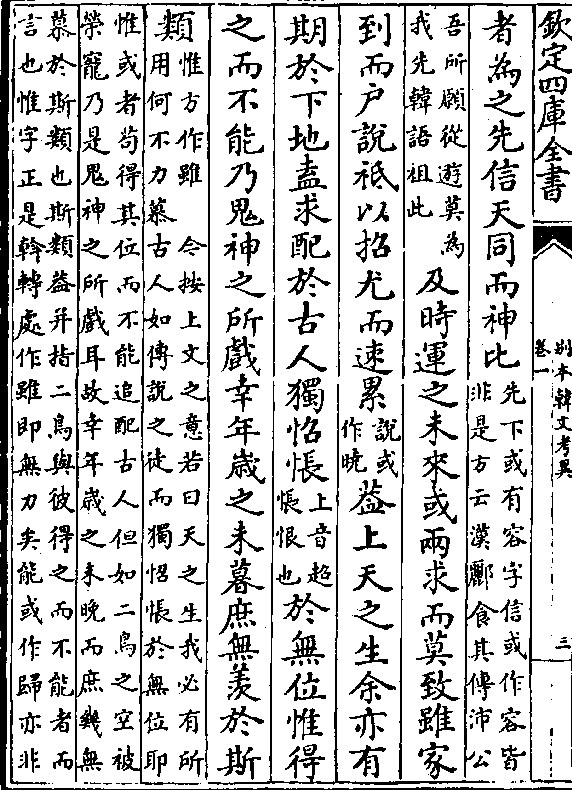 欽定四庫全書
别本韓文考異
卷一
三
者為之先信天同而神比
先下或有容字信或作容皆
非是方云漢酈食其傳沛公
吾所願從遊莫為
我先韓語祖此
及時運之未來或兩求而莫致雖家
到而户說祗以招尤而速累
說或
作曉
葢上天之生余亦有
期於下地盍求配於古人獨怊悵
上音超
悵恨也
於無位惟得
之而不能乃鬼神之所戲幸年歲之未暮庶無羨於斯
類
惟方作雖 今按上文之意若曰天之生我必有所
用何不力慕古人如傅說之徒而獨怊悵於無位耶
惟或者苟得其位而不能追配古人但如二鳥之空被
榮寵乃是鬼神之所戲耳故幸年歲之未晚而庶幾無
慕於斯類也斯類葢并指二鳥與彼得之而不能者而
言也惟字正是斡轉處作雖即無力矣能或作歸亦非